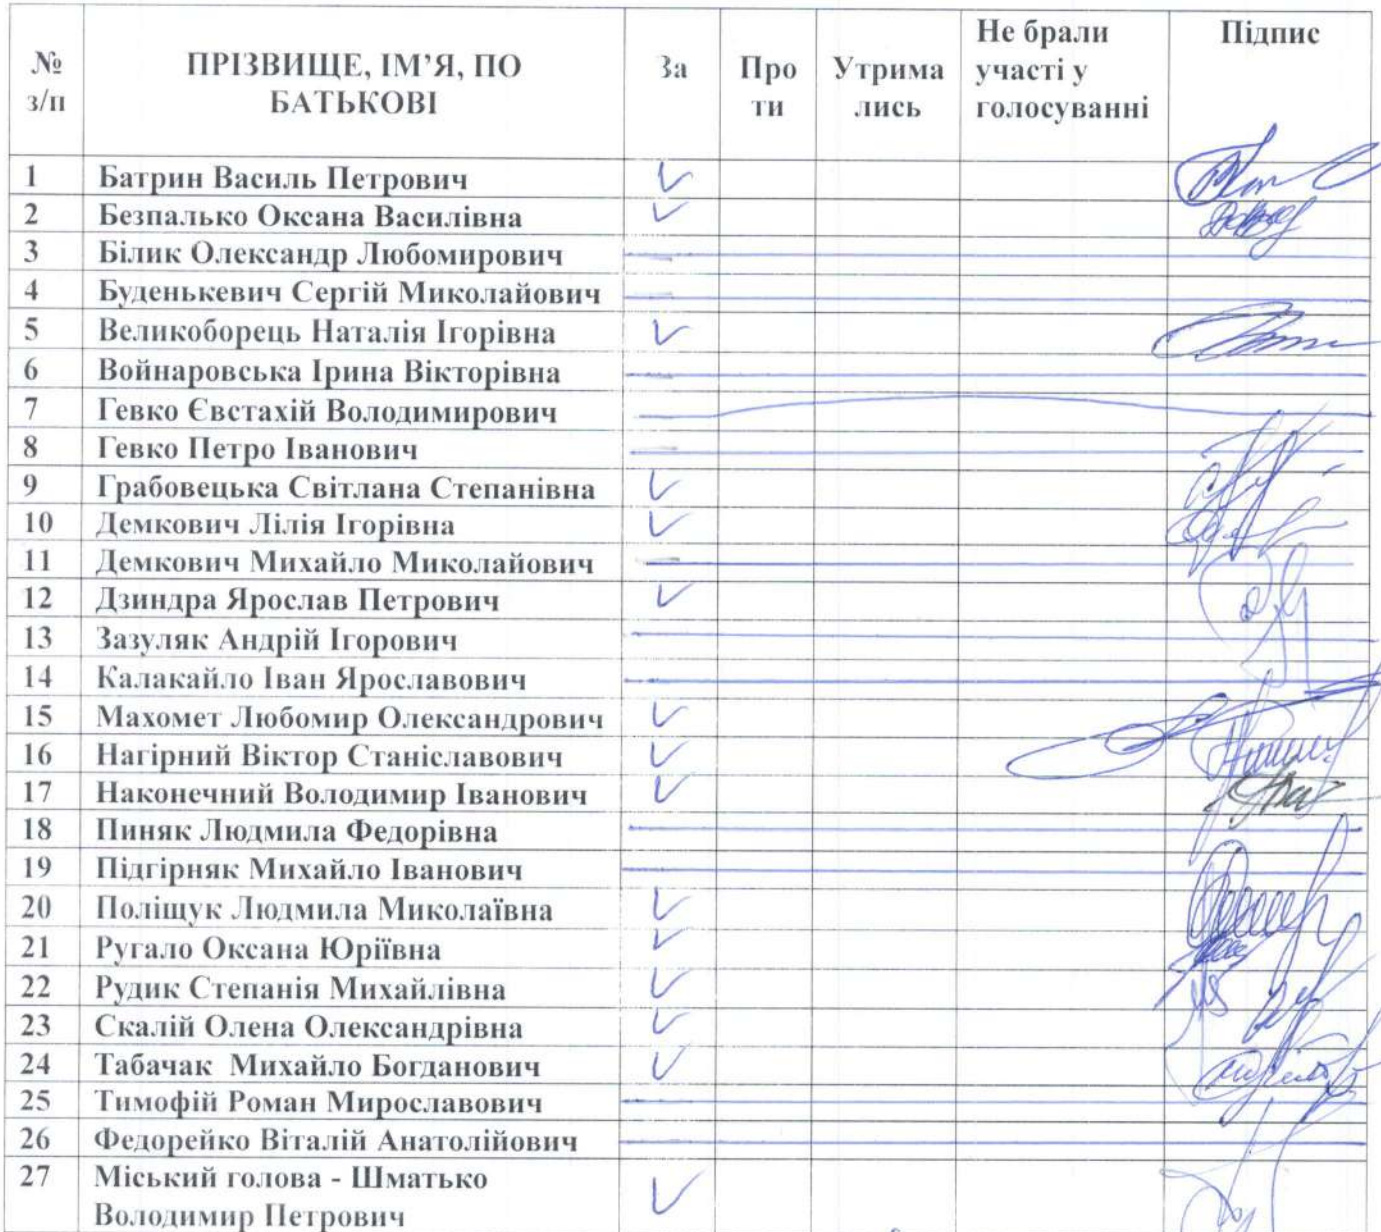 № з/п ПРІЗВИЩЕ, ІМ’Я, ПО БАТЬКОВІ За Про ти Утрима лись Не брали участі у голосуванні Підпис
1 Батрин Василь Петрович ✓
2 Безпалько Оксана Василівна ✓
3 Білик Олександр Любомирович
4 Буденькевич Сергій Миколайович
5 Великоборець Наталія Ігорівна ✓
6 Войнаровська Ірина Вікторівна
7 Гевко Євстахій Володимирович
8 Гевко Петро Іванович
9 Грабовецька Світлана Степанівна ✓
10 Демкович Лілія Ігорівна ✓
11 Демкович Михайло Миколайович
12 Дзиндра Ярослав Петрович ✓
13 Зазуляк Андрій Ігорович
14 Калакайло Іван Ярославович
15 Махомет Любомир Олександрович ✓
16 Нагірний Віктор Станіславович ✓
17 Наконечний Володимир Іванович ✓
18 Пиняк Людмила Федорівна
19 Підгірняк Михайло Іванович
20 Поліщук Людмила Миколаївна ✓
21 Ругало Оксана Юріївна ✓
22 Рудик Степанія Михайлівна ✓
23 Скалій Олена Олександрівна ✓
24 Табачак Михайло Богданович ✓
25 Тимофій Роман Мирославович
26 Федорейко Віталій Анатолійович
27 Міський голова - Шматько
Володимир Петрович ✓